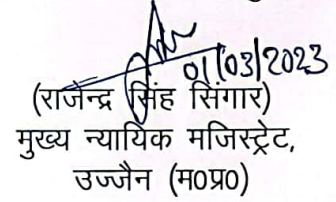 01/03/2023
(राजेन्द्र सिंह सिंगार)
मुख्य न्यायिक मजिस्ट्रेट,
उज्जैन (म0प्र0)